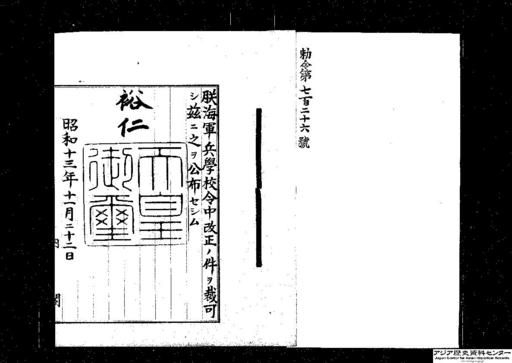 勅令第七百二十六號
朕海軍兵學校令中改正ノ件ヲ裁可
シ茲ニ之ヲ公布セシム
裕仁
天皇御璽
昭和十三年十一月二十二日
内閣
アジア歴史資料センター
Japan Center for Asian Historical Records